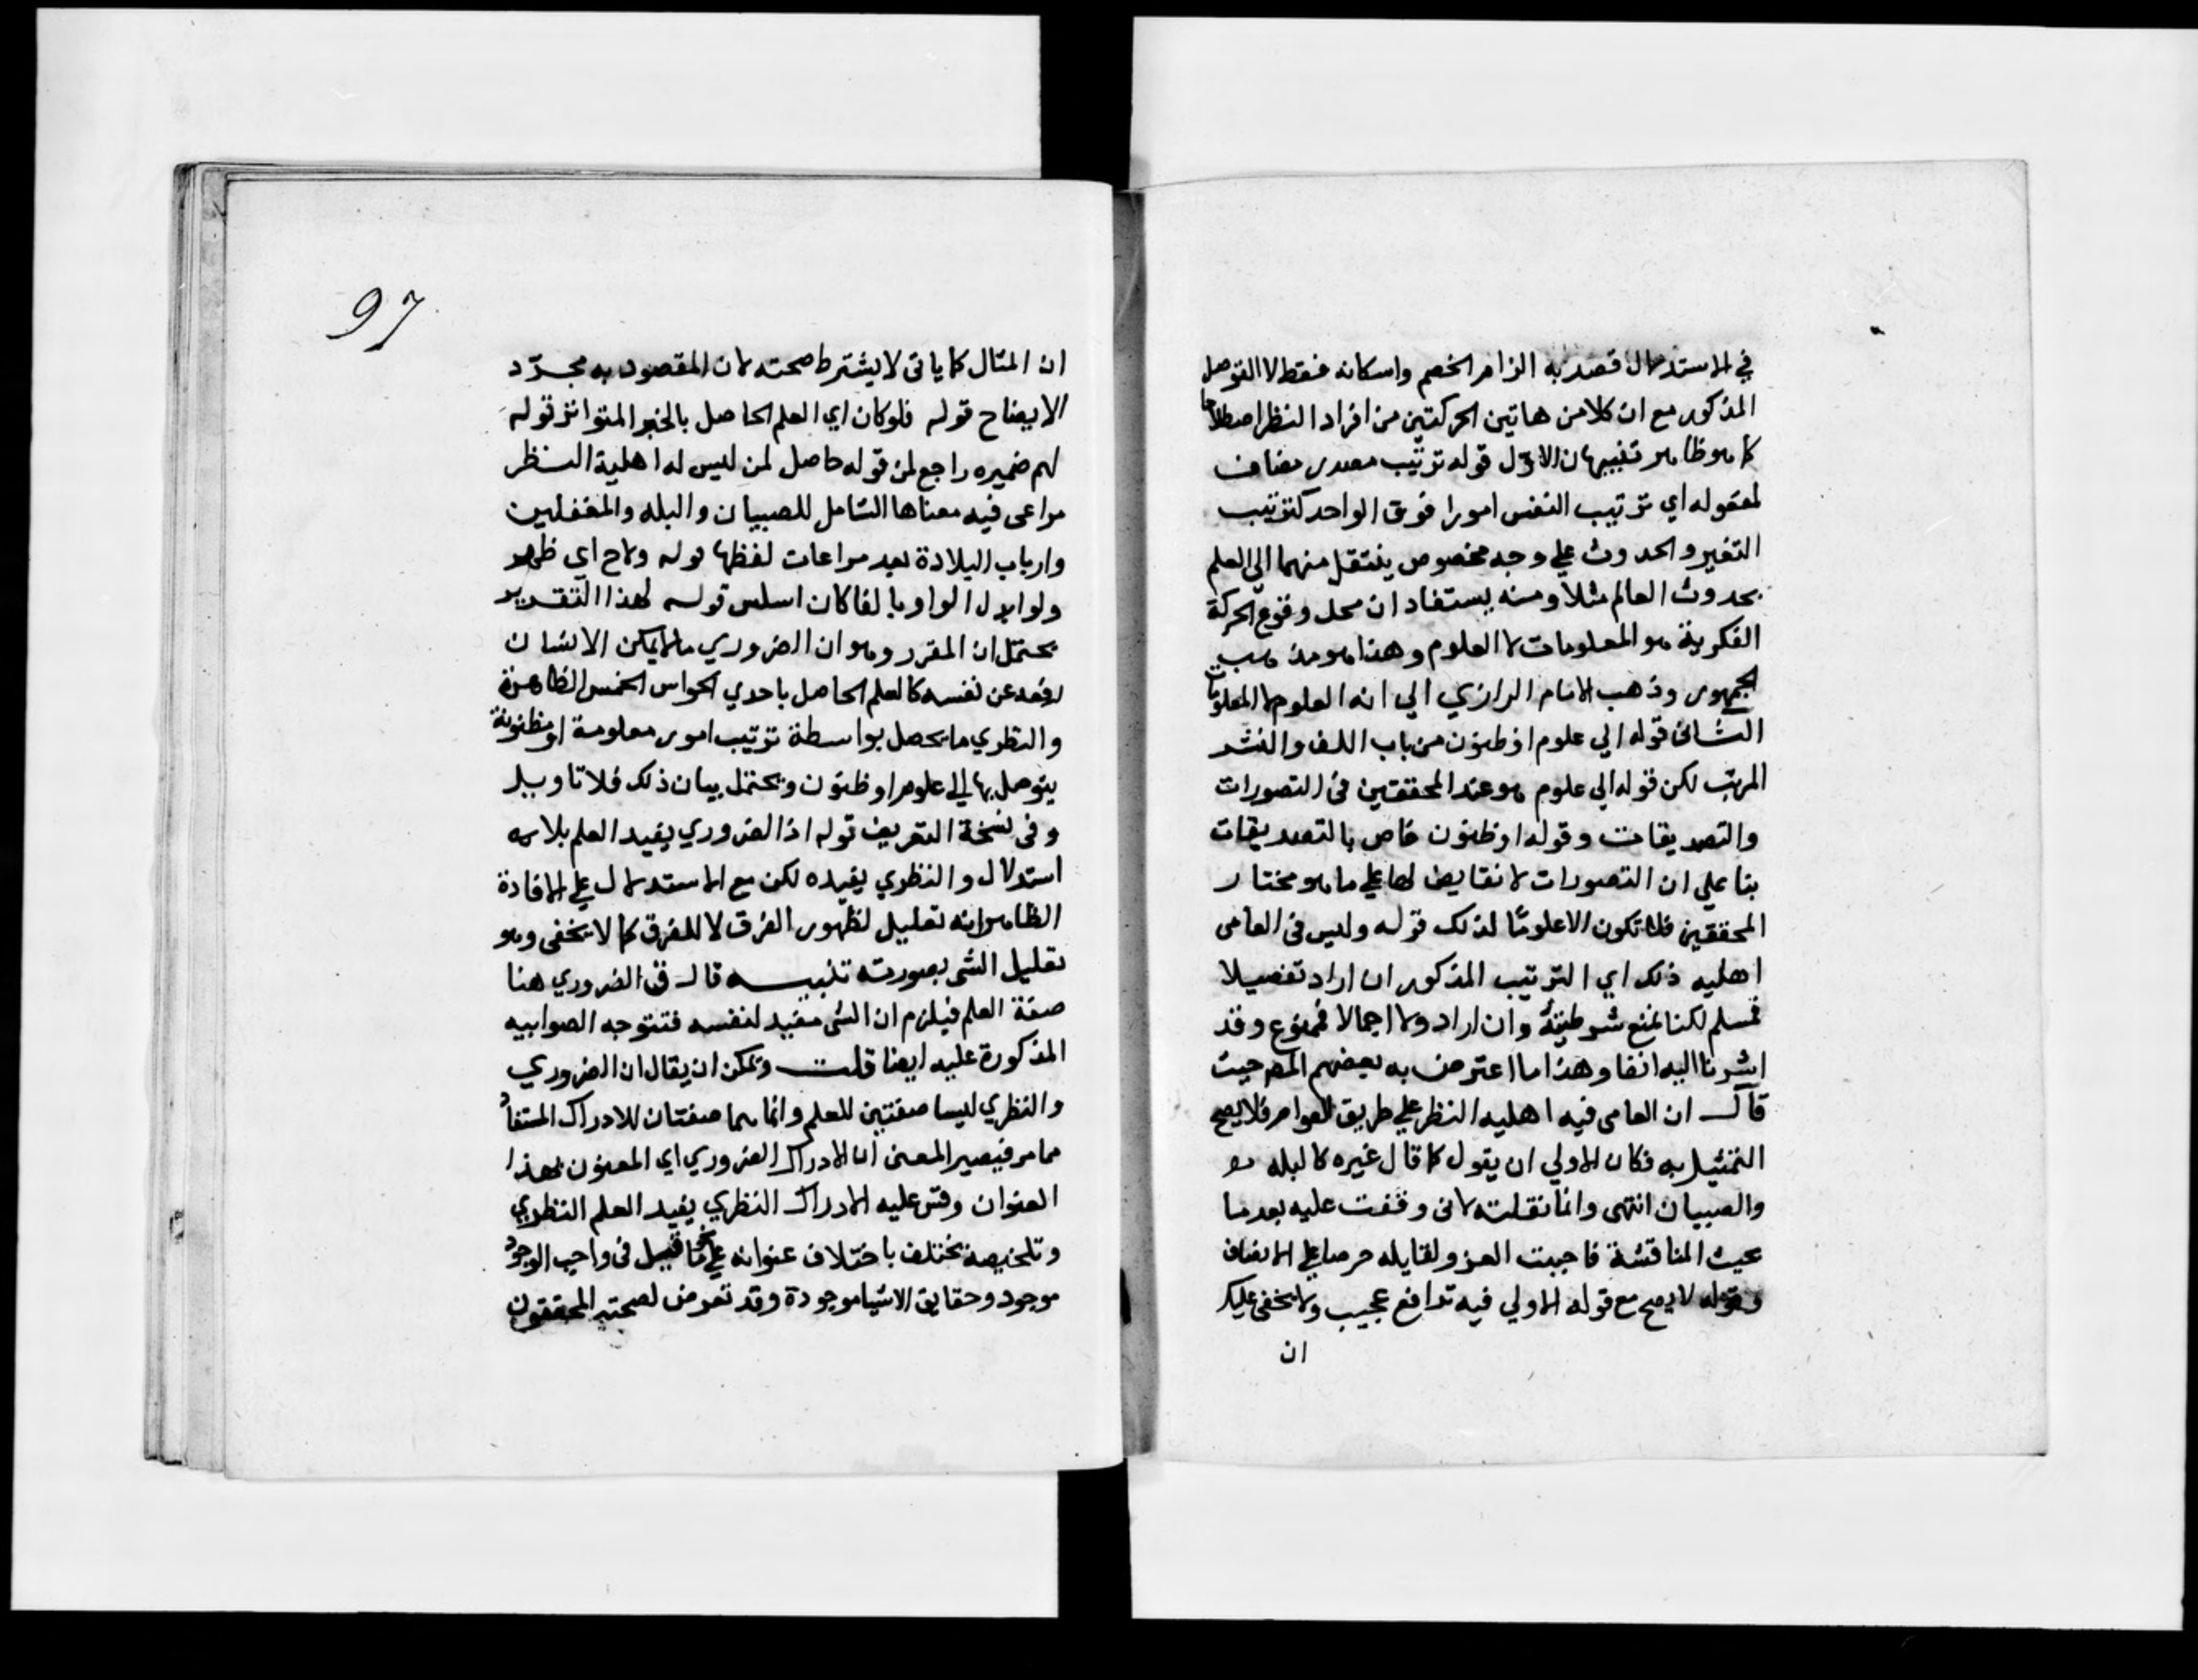 في الاستدلال قصد به الزام الخصم واسكاته فقط لا التوصل
المذكور مع ان كلا من هاتين الحركتين من افراد النظر اصطلاحا
كما هو ظاهر تنبيهان الاول قوله ترتيب مصدر مضاف
لمفعوله اي ترتيب النفس امورا فوق الواحد كترتيب
التغير والحدوث علي وجه مخصوص ينتقل منهما الي العلم
بحدوث العالم مثلا ومنه يستفاد ان محل وقوع الحركة
الفكرية هو المعلومات لا العلوم وهذا هو مذهب
الجمهور وذهب الامام الرازي الي انه العلوم لا المعلومات
الثاني قوله الي علوم او ظنون من باب اللف والنشر
المرتب لكن قوله الي علوم هو عند المحققين في التصورات
والتصديقات وقوله او ظنون خاص بالتصديقات
بنا علي ان التصورات لا نقايض لها علي ما هو مختار
المحققين فلا تكون الا علوما لذلك قوله وليس في العامي
اهليه ذلك اي الترتيب المذكور ان اراد تفصيلا
فمسلم لكنا نمنع شرطيته وان اراد ولا اجمالا فممنوع وقد
اشرنا اليه انفا وهذا ما اعترض به بعضهم المص حيث
قال ان العامي فيه اهليه النظر علي طريق العوام فلا يصح
التمثيل به فكان الاولي ان يقول كما قال غيره كالبله
والصبيان انتهى وانما نقلته لاني وقفت عليه بعد ما
بحيث المناقشة فاجبت العزو لقايله حرصا علي الانصاف
وقوله لا يصح مع قوله الاولي فيه تدافع عجيب ولا يخفى عليك
ان
97
ان المثال كما ياتى لا يشترط صحته لان المقصود به مجرّد
الايضاح قوله فلو كان اي العلم الحاصل بالخبر المتواتر قوله
لهم ضميره راجع لمن قوله حاصل لمن ليس له اهلية النظر
مراعى فيه معناها الشامل للصبيان والبله والمغفلين
وارباب البلادة بعد مراعات لفظها قوله ولاح اي ظهر
ولو ابدل الواو بالفا كان اسلس قوله لهذا التقدير
يحتمل ان المقرر وهو ان الضروري ما لا يمكن الانسان
دفعه عن نفسه كالعلم الحاصل باحدي الحواس الخمس الظاهرة
والنظري ما يحصل بواسطة ترتيب امور معلومة او مظنونة
يتوصل بها الي علوم او ظنون ويحتمل بيان ذلك فلا تاويل
وفي نسخة التعريف قوله اذ الضروري يفيد العلم بلا
استدلال والنظري يفيده لكن مع الاستدلال علي الافادة
الظاهر انه تعليل لظهور الفرق لا للفرق كما لا يخفى وهو
تعليل الشي بصورته تنبيه قال ق الضروري هنا
صفة العلم فيلزم ان الشي مفيد لنفسه فتتوجه الصوابيه
المذكورة عليه ايضا قلت ويمكن ان يقال ان الضروري
والنظري ليسا صفتين للعلم وانما هما صفتان للادراك المستفاد
مما مر فيصير المعنى ان الادراك الضروري اي المعنون بهذا
العنوان وقس عليه الادراك النظري يفيد العلم النظري
وتلخيصه يختلف باختلاف عنوانه علي نحو ما قيل في واجب الوجود
موجود وحقايق الاشيا موجودة وقد تعرض لصحته المحققون